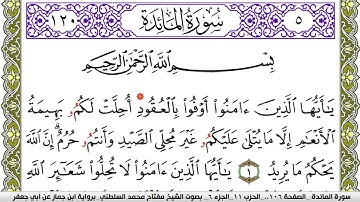 ١٢٠ سُورَةُ المَائِدَةِ ٥
بِسْمِ اللَّهِ الرَّحْمَٰنِ الرَّحِيمِ
يَٰٓأَيُّهَا ٱلَّذِينَ ءَامَنُوٓا۟ أَوْفُوا۟ بِٱلْعُقُودِ أُحِلَّتْ لَكُمُۥ بَهِيمَةُ
ٱلْأَنْعَٰمِ إِلَّا مَا يُتْلَىٰ عَلَيْكُمُۥ غَيْرَ مُحِلِّى ٱلصَّيْدِ وَأَنتُمُۥ حُرُمٌ إِنَّ ٱللَّهَ
يَحْكُمُ مَا يُرِيدُ ١ يَٰٓأَيُّهَا ٱلَّذِينَ ءَامَنُوا۟ لَا تُحِلُّوا۟ شَعَٰٓئِرَ ٱللَّهِ
سورة المائدة .. الصفحة ١٠٦ .. الحزب ١١ الجزء ٦ .. بصوت الشيخ مفتاح محمد السلطني .برواية ابن جماز عن أبي جعفر